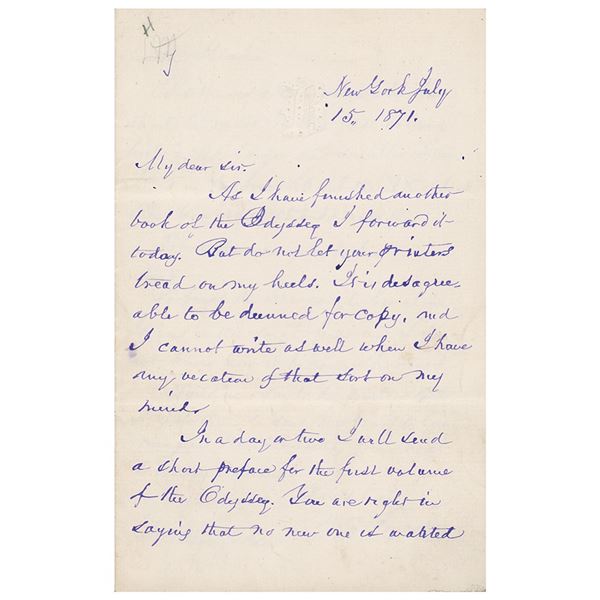 New York July
15, 1871.
My dear sir.
As I have finished another
book of the Odyssey I forward it
today. But do not let your printers
tread on my heels. It is disagree-
able to be dunned for copy, and
I cannot write as well when I have
my vexation of that sort on my
mind.
In a day or two I will send
a short preface for the first volume
of the Odyssey. You are right in
saying that no new one is wanted